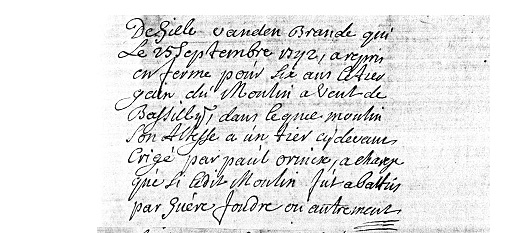 De Giele vanden Brande qui
Le 25 Septembre 1772, a repris
en ferme pour Six ans Le tier
gain du Moulin a Vent de
Bassilly, dans leque moulin
Son Altesse a un tier cydevant
Erigé par paul orinck, a charge
que Si Ledit Moulin fut abattus
par Guere foudre ou autrement